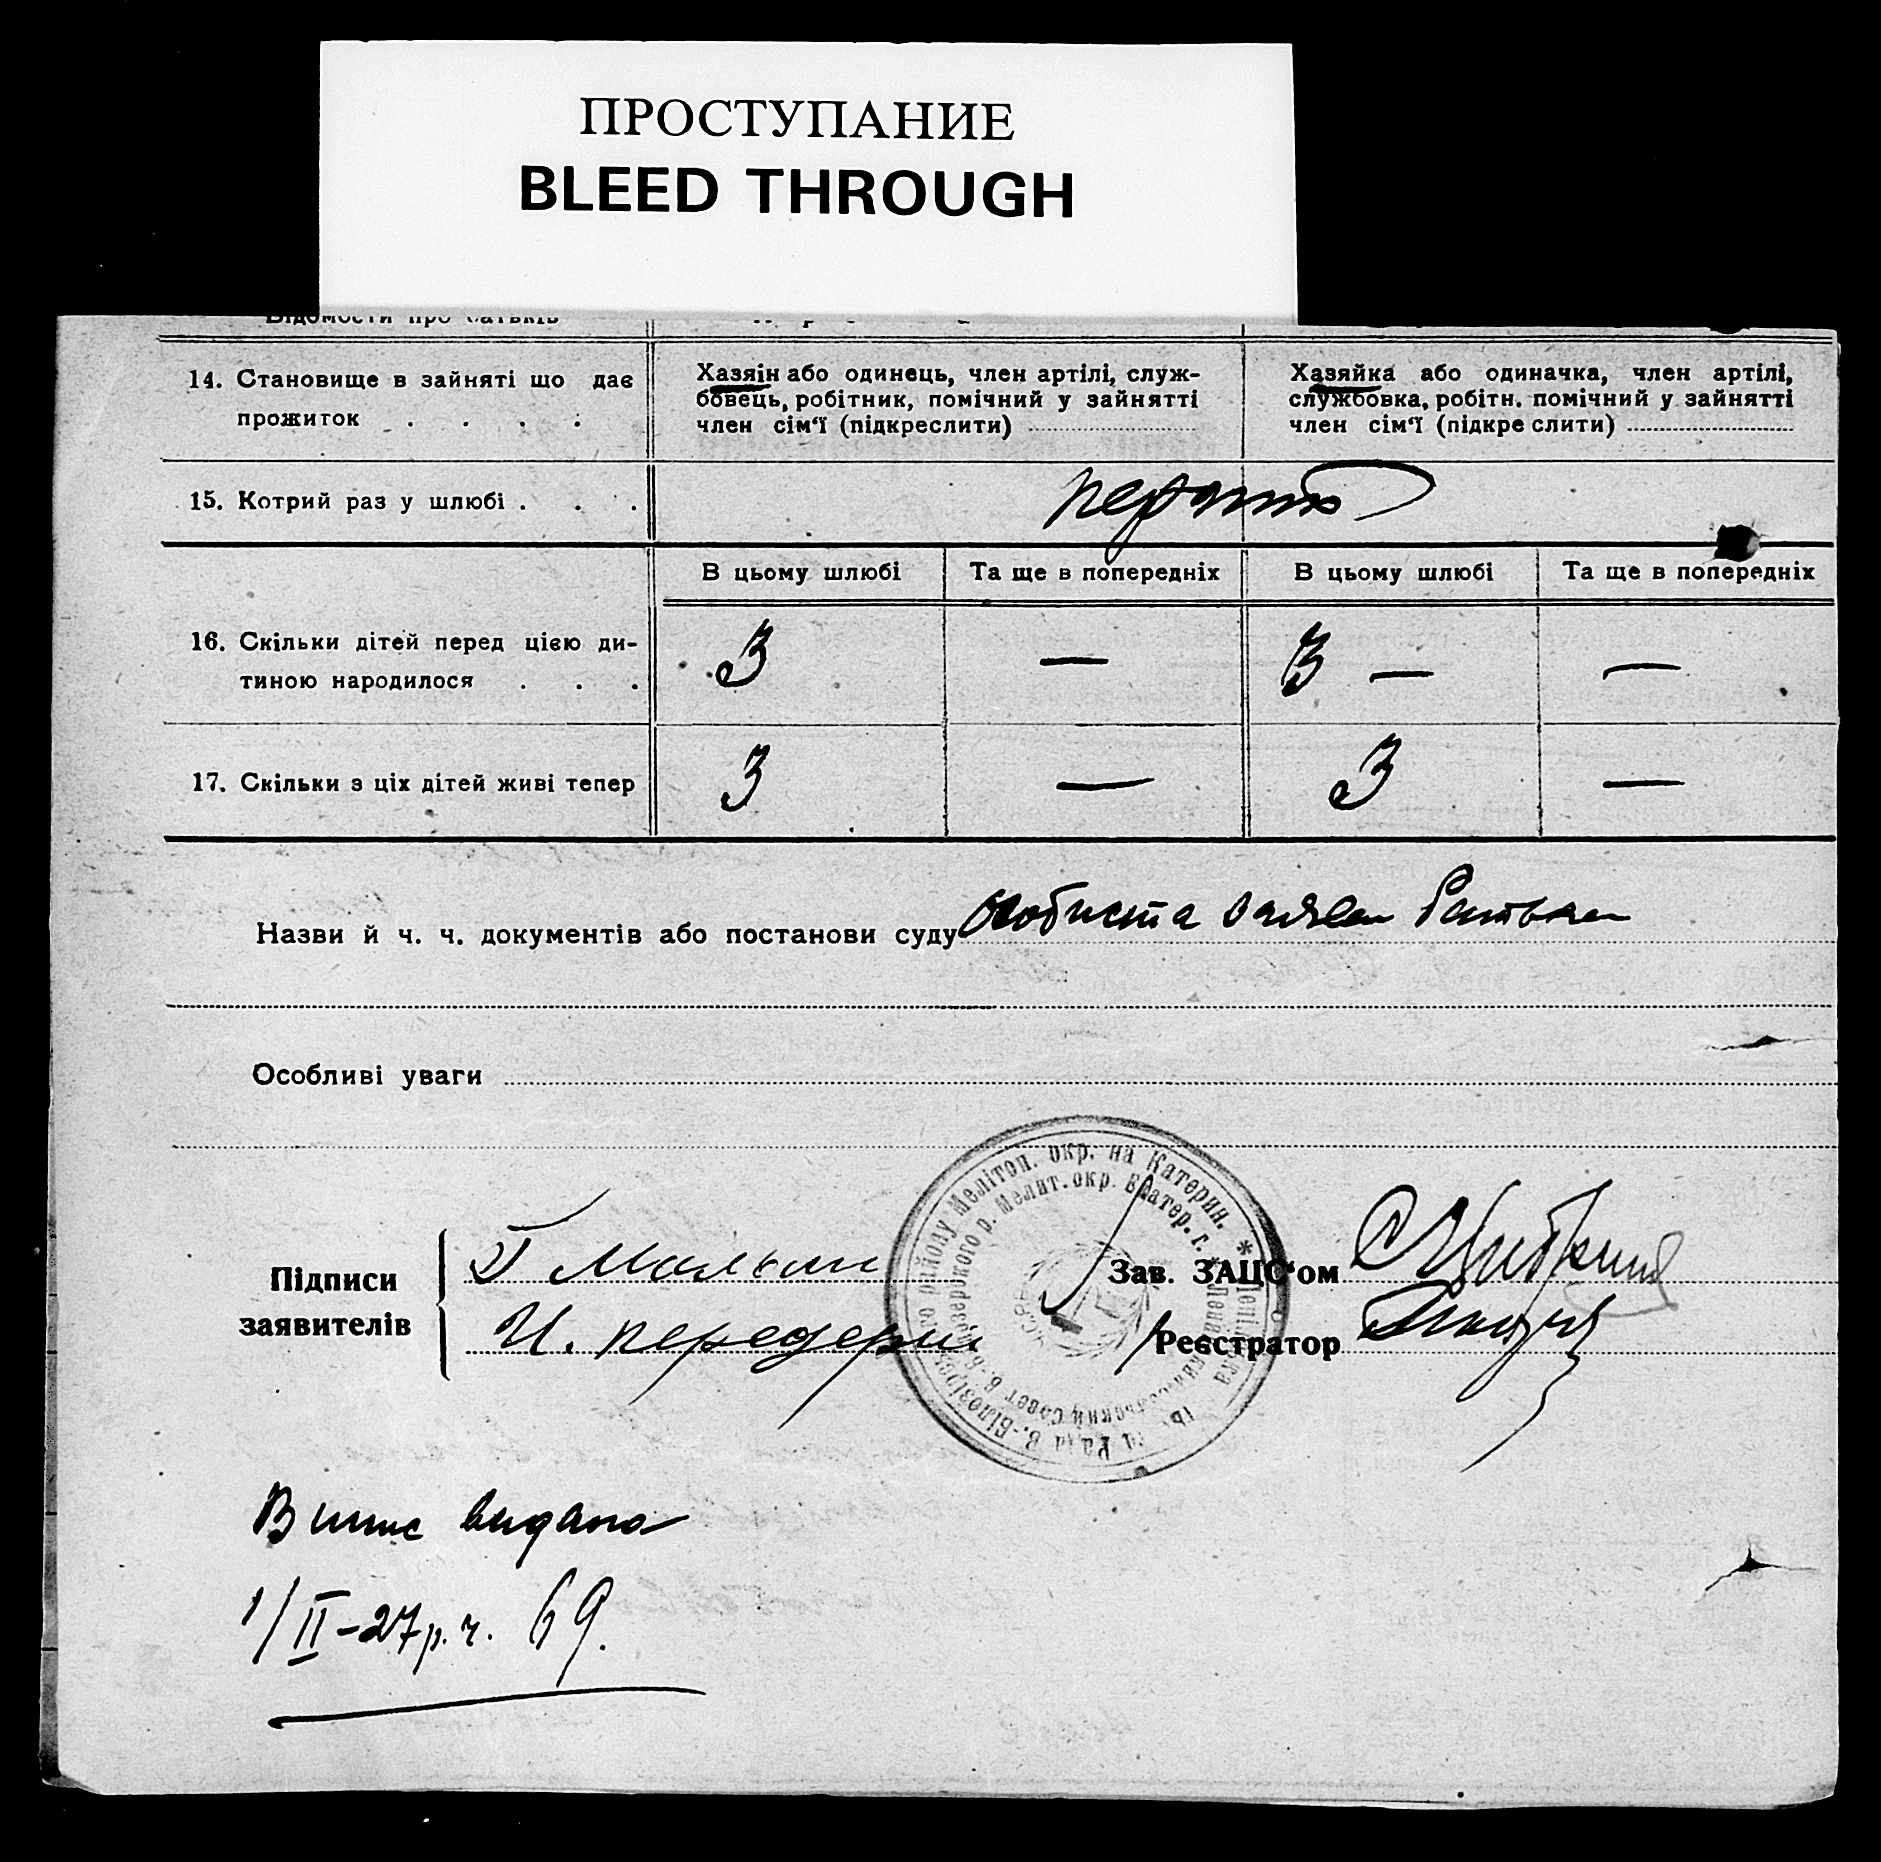 ПРОСТУПАНИЕ
BLEED THROUGH
Відомости про батьків
14. Становище в зайняті що дає
прожиток . . . .
Хазяін або одинець, член артілі, служ-
бовець, робітник, помічний у зайнятті
член сім‘ї (підкреслити)
Хазяйка або одиначка, член артілі,
службовка, робітн. помічний у зайнятті
член сім‘ї (підкреслити)
15. Котрий раз у шлюбі . . .
В цьому шлюбі Та ще в попередніх В цьому шлюбі Та ще в попередніх
16. Скільки дітей перед цією ди-
тиною народилося . . .
3 — 3 — —
17. Скільки з ціх дітей живі тепер 3 — 3 —
Назви й ч. ч. документів або постанови суду особиста заява батька
Особливі уваги
Підписи
заявителів
Зав. ЗАЦС‘ом
И. передери
Реєстратор
району Мелітоп. окр. на Катерин. *
р. Мелит. окр. Екатер. г. *
Рада В.-Білозірського
Випис видано
1/II-27 р. ч. 69.